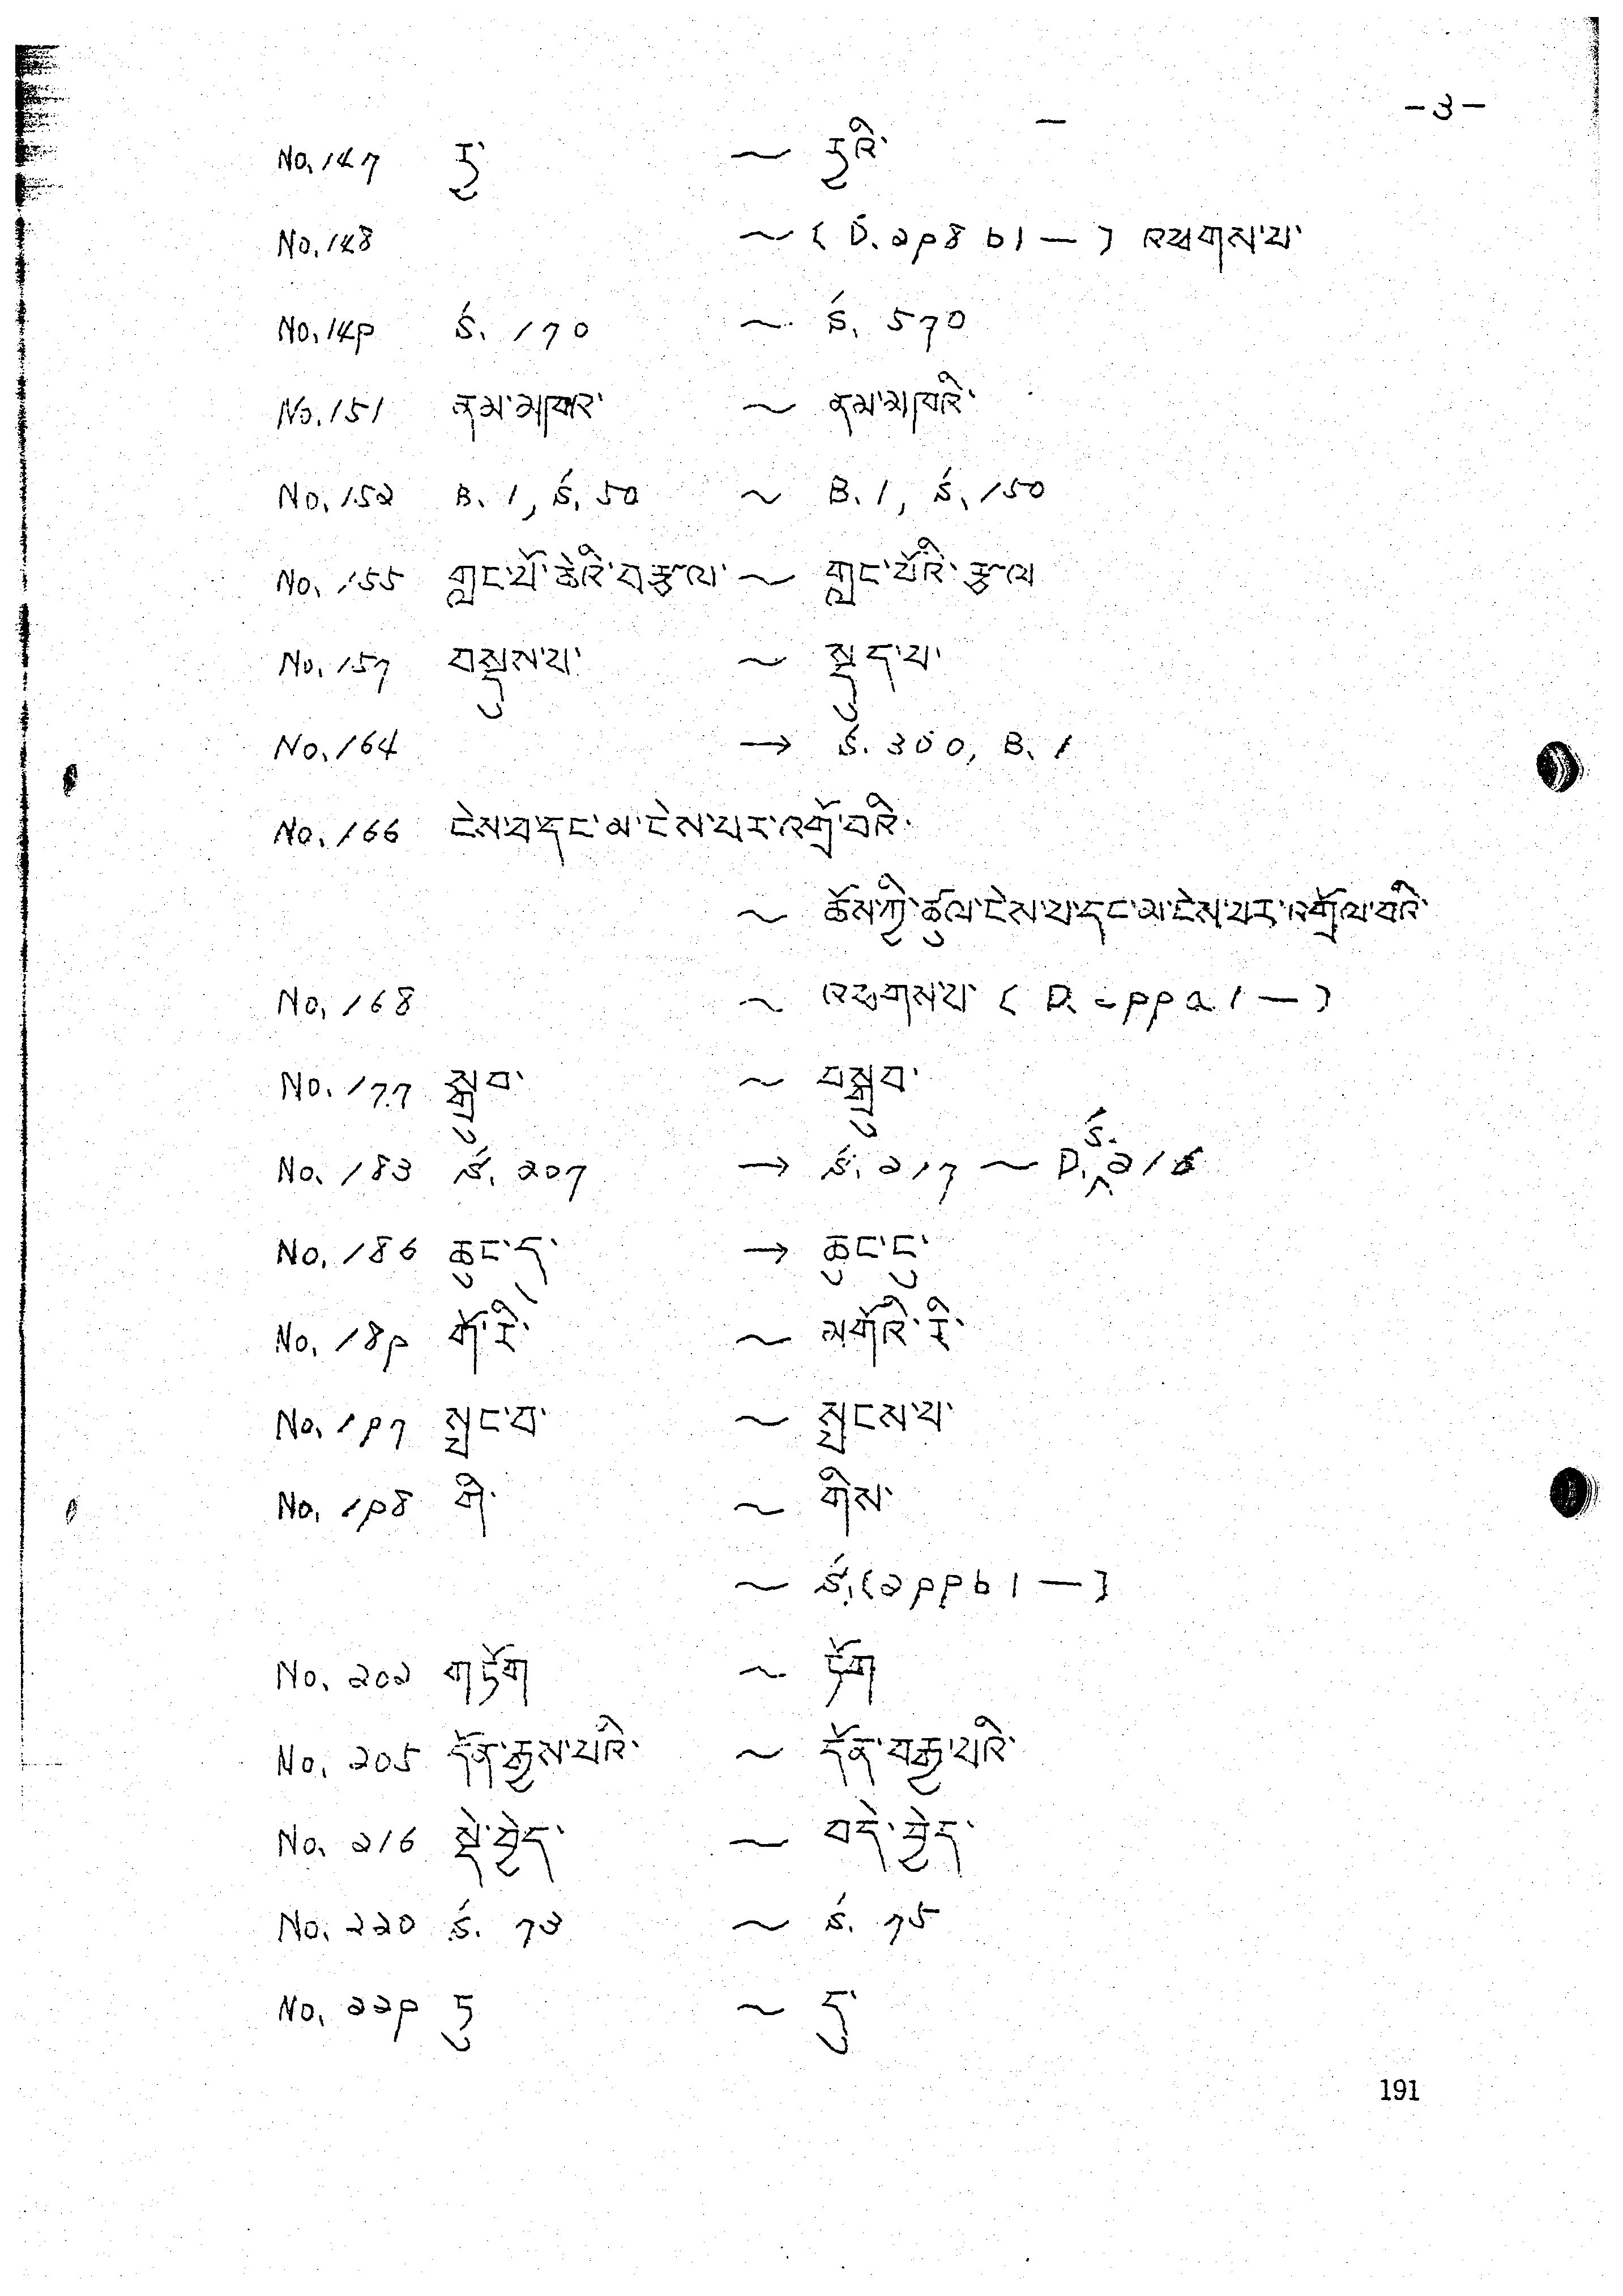 -3-
No. 147 རྱ་ ~ རྱའི་
No. 148 ~ ( D. 298 b1 — ) འཕགས་པ་
No. 149 Ś. 170 ~ Ś. 570
No. 151 ནམ་མཁའ་ ~ ནམ་མཁའི་
No. 152 B. 1, Ś. 50 ~ B. 1, Ś. 150
No. 155 གླང་པོ་ཆེའི་བརྩལ་ ~ གླང་པོའི་རྩལ
No. 157 བསྡུས་པ་ ~ སྡུད་པ་
No. 164 → Ś. 300, B. 1
No. 166 ངེས་པ་དང་མ་ངེས་པར་འགྲོ་བའི་
~ ཆོས་ཀྱི་ཚུལ་ངེས་པ་དང་མ་ངེས་པར་འགྲོལ་བའི་
No. 168 ~ འཕགས་པ་ ( D. 299 a 1 — )
No. 177 སྒྲུབ་ ~ བསྒྲུབ་
No. 183 Ś. 207 → Ś. 217 ~ D. Ś. 216
No. 186 ཆུང་ད་ → ཆུང་ངུ་
No. 189 གོ་རི་ ~ མགོའི་རི་
No. 197 སྤྲང་བ་ ~ སྤྲངས་པ་
No. 198 གི་ ~ གིས་
~ Ś. ( 299 b 1 — )
No. 202 གཏོག ~ ཏོག
No. 205 དོན་རྒྱས་པའི་ ~ དོན་བརྒྱ་པའི་
No. 216 སྡེ་བྱེད་ ~ བདེ་བྱེད་
No. 220 Ś. 73 ~ Ś. 75
No. 229 ཏུ ~ དུ་
191